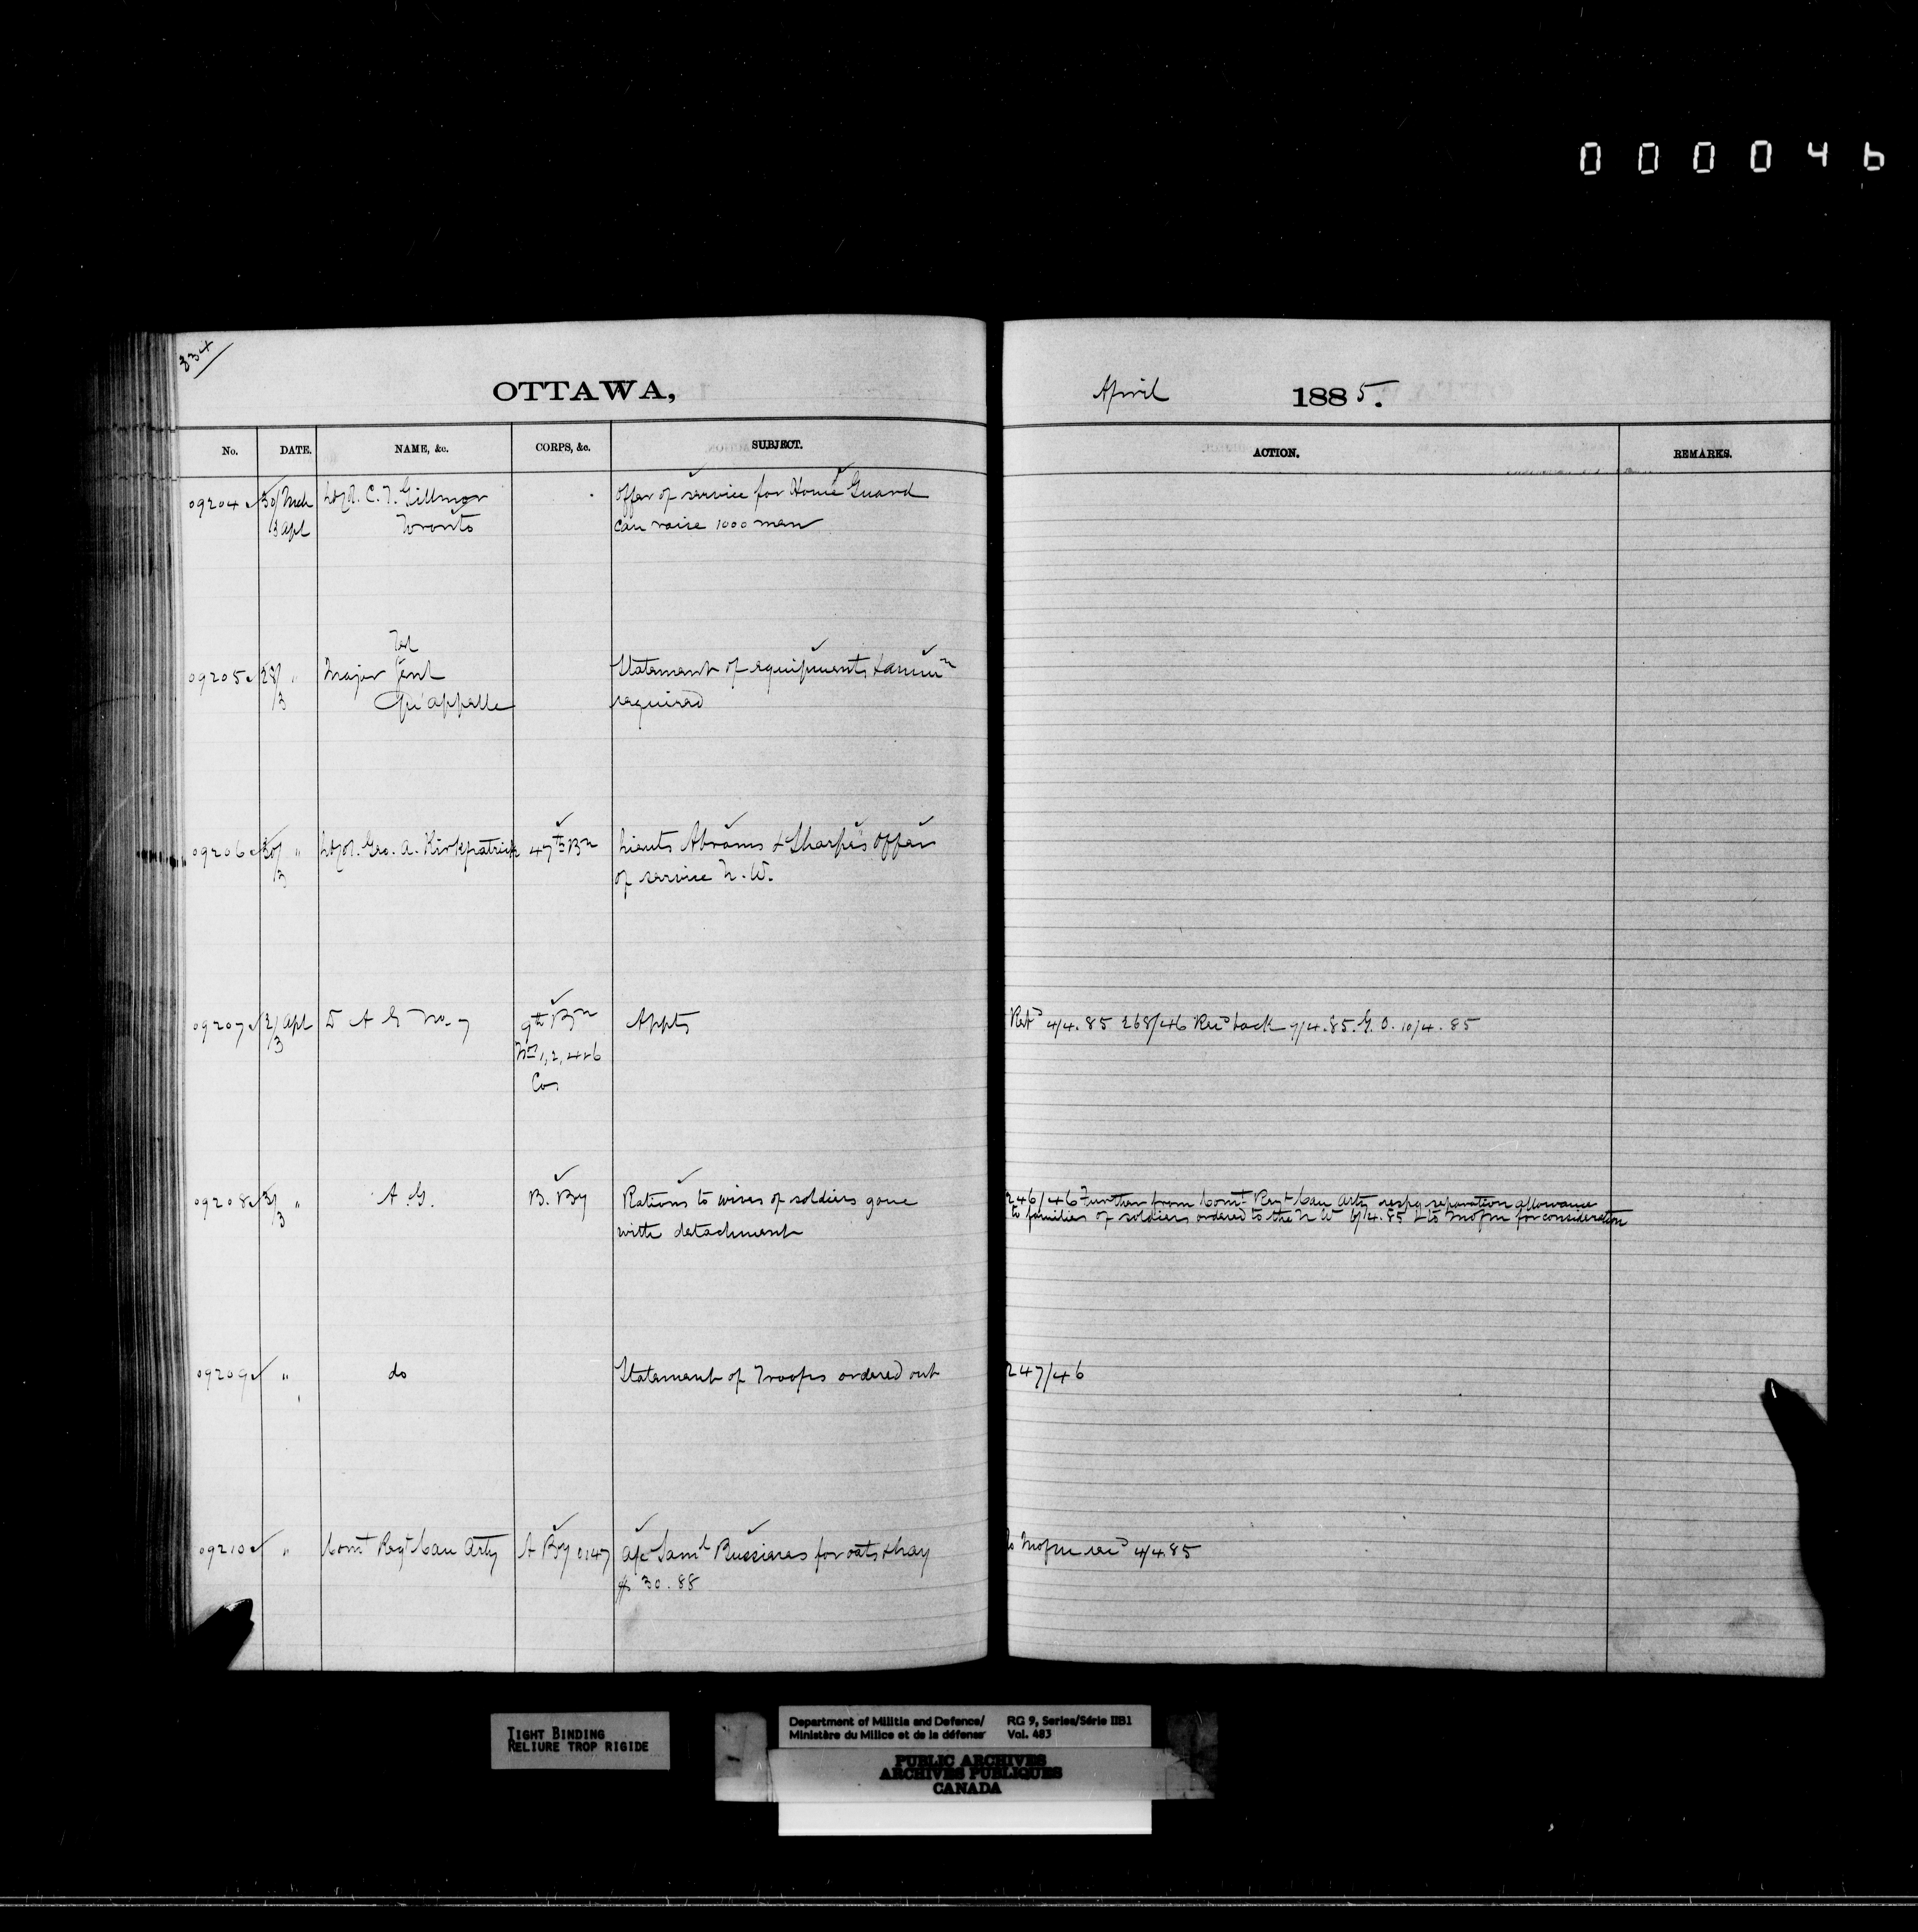 000046
334
OTTAWA,
April 1885.
No. DATE. NAME, &c. CORPS, &c. SUBJECT. ACTION. REMARKS.
09204 30/Mch Lt Col. C. T. Gillmor Offer of service for Home Guard
3 Apl Toronto can raise 1000 men
Tel
09205 28/ " Major Jent Statement of equipments & ammn
3 Qu'appelle required
09206 30/ " Lt Col. Geo. A. Kirkpatrick 47th Bn Lieuts Abrams & Sharpe's offer
3 of service N. W.
09207 2/Apl D A G No. 7 9th Bn Appts Retd 4/4.85 268/46 Recd back 7/4.85. G. O. 10/4.85
3 Nos 1, 2, 4 & 6
Cos
09208 3/ " A. G. B. By Rations to wives of soldiers gone 246/46 Further from Comt Regt Can Arty respg separation allowance
3 with detachment to families of soldiers ordered to the N W 6/4.85 to M of M for consideration
09209 " do Statement of Troops ordered out 247/46
09210 " Comt Regt Can Arty A By 0147 a/c Saml Bussieres for oats & hay to M of M recd 4/4.85
$30.88
TIGHT BINDING
RELIURE TROP RIGIDE
Department of Militia and Defence/ RG 9, Series/Série IIB1
Ministère du Milice et de la défense Vol. 483
PUBLIC ARCHIVES
ARCHIVES PUBLIQUES
CANADA